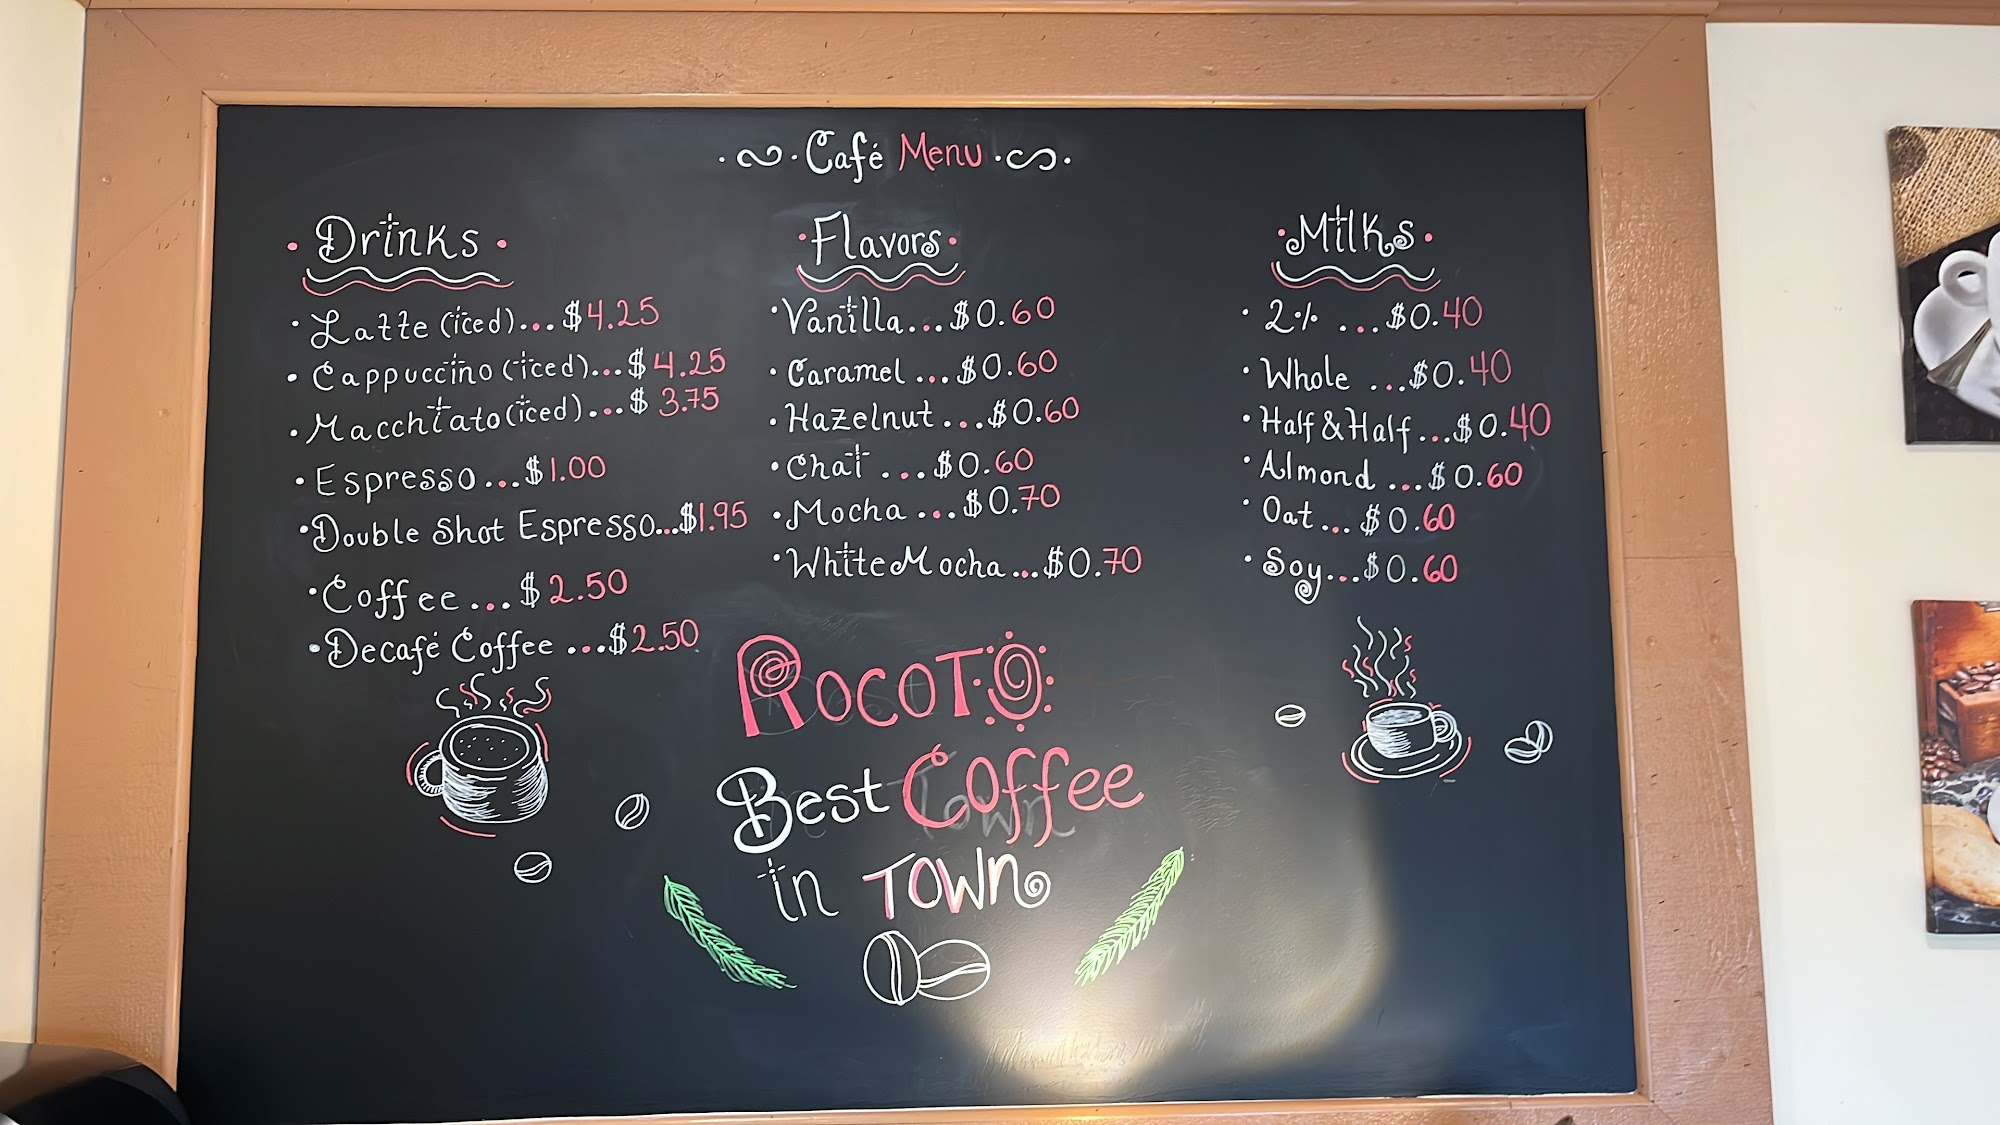 Café Menu
Drinks
Latte (iced)...$4.25
Cappuccino (iced)...$4.25
Macchiato (iced)...$3.75
Espresso...$1.00
Double Shot Espresso...$1.95
Coffee...$2.50
Decafé Coffee...$2.50
Flavors
Vanilla...$0.60
Caramel...$0.60
Hazelnut...$0.60
Chai...$0.60
Mocha...$0.70
White Mocha...$0.70
Milks
2%...$0.40
Whole...$0.40
Half & Half...$0.40
Almond...$0.60
Oat...$0.60
Soy...$0.60
ROCOTO
Best Coffee
in TOWN